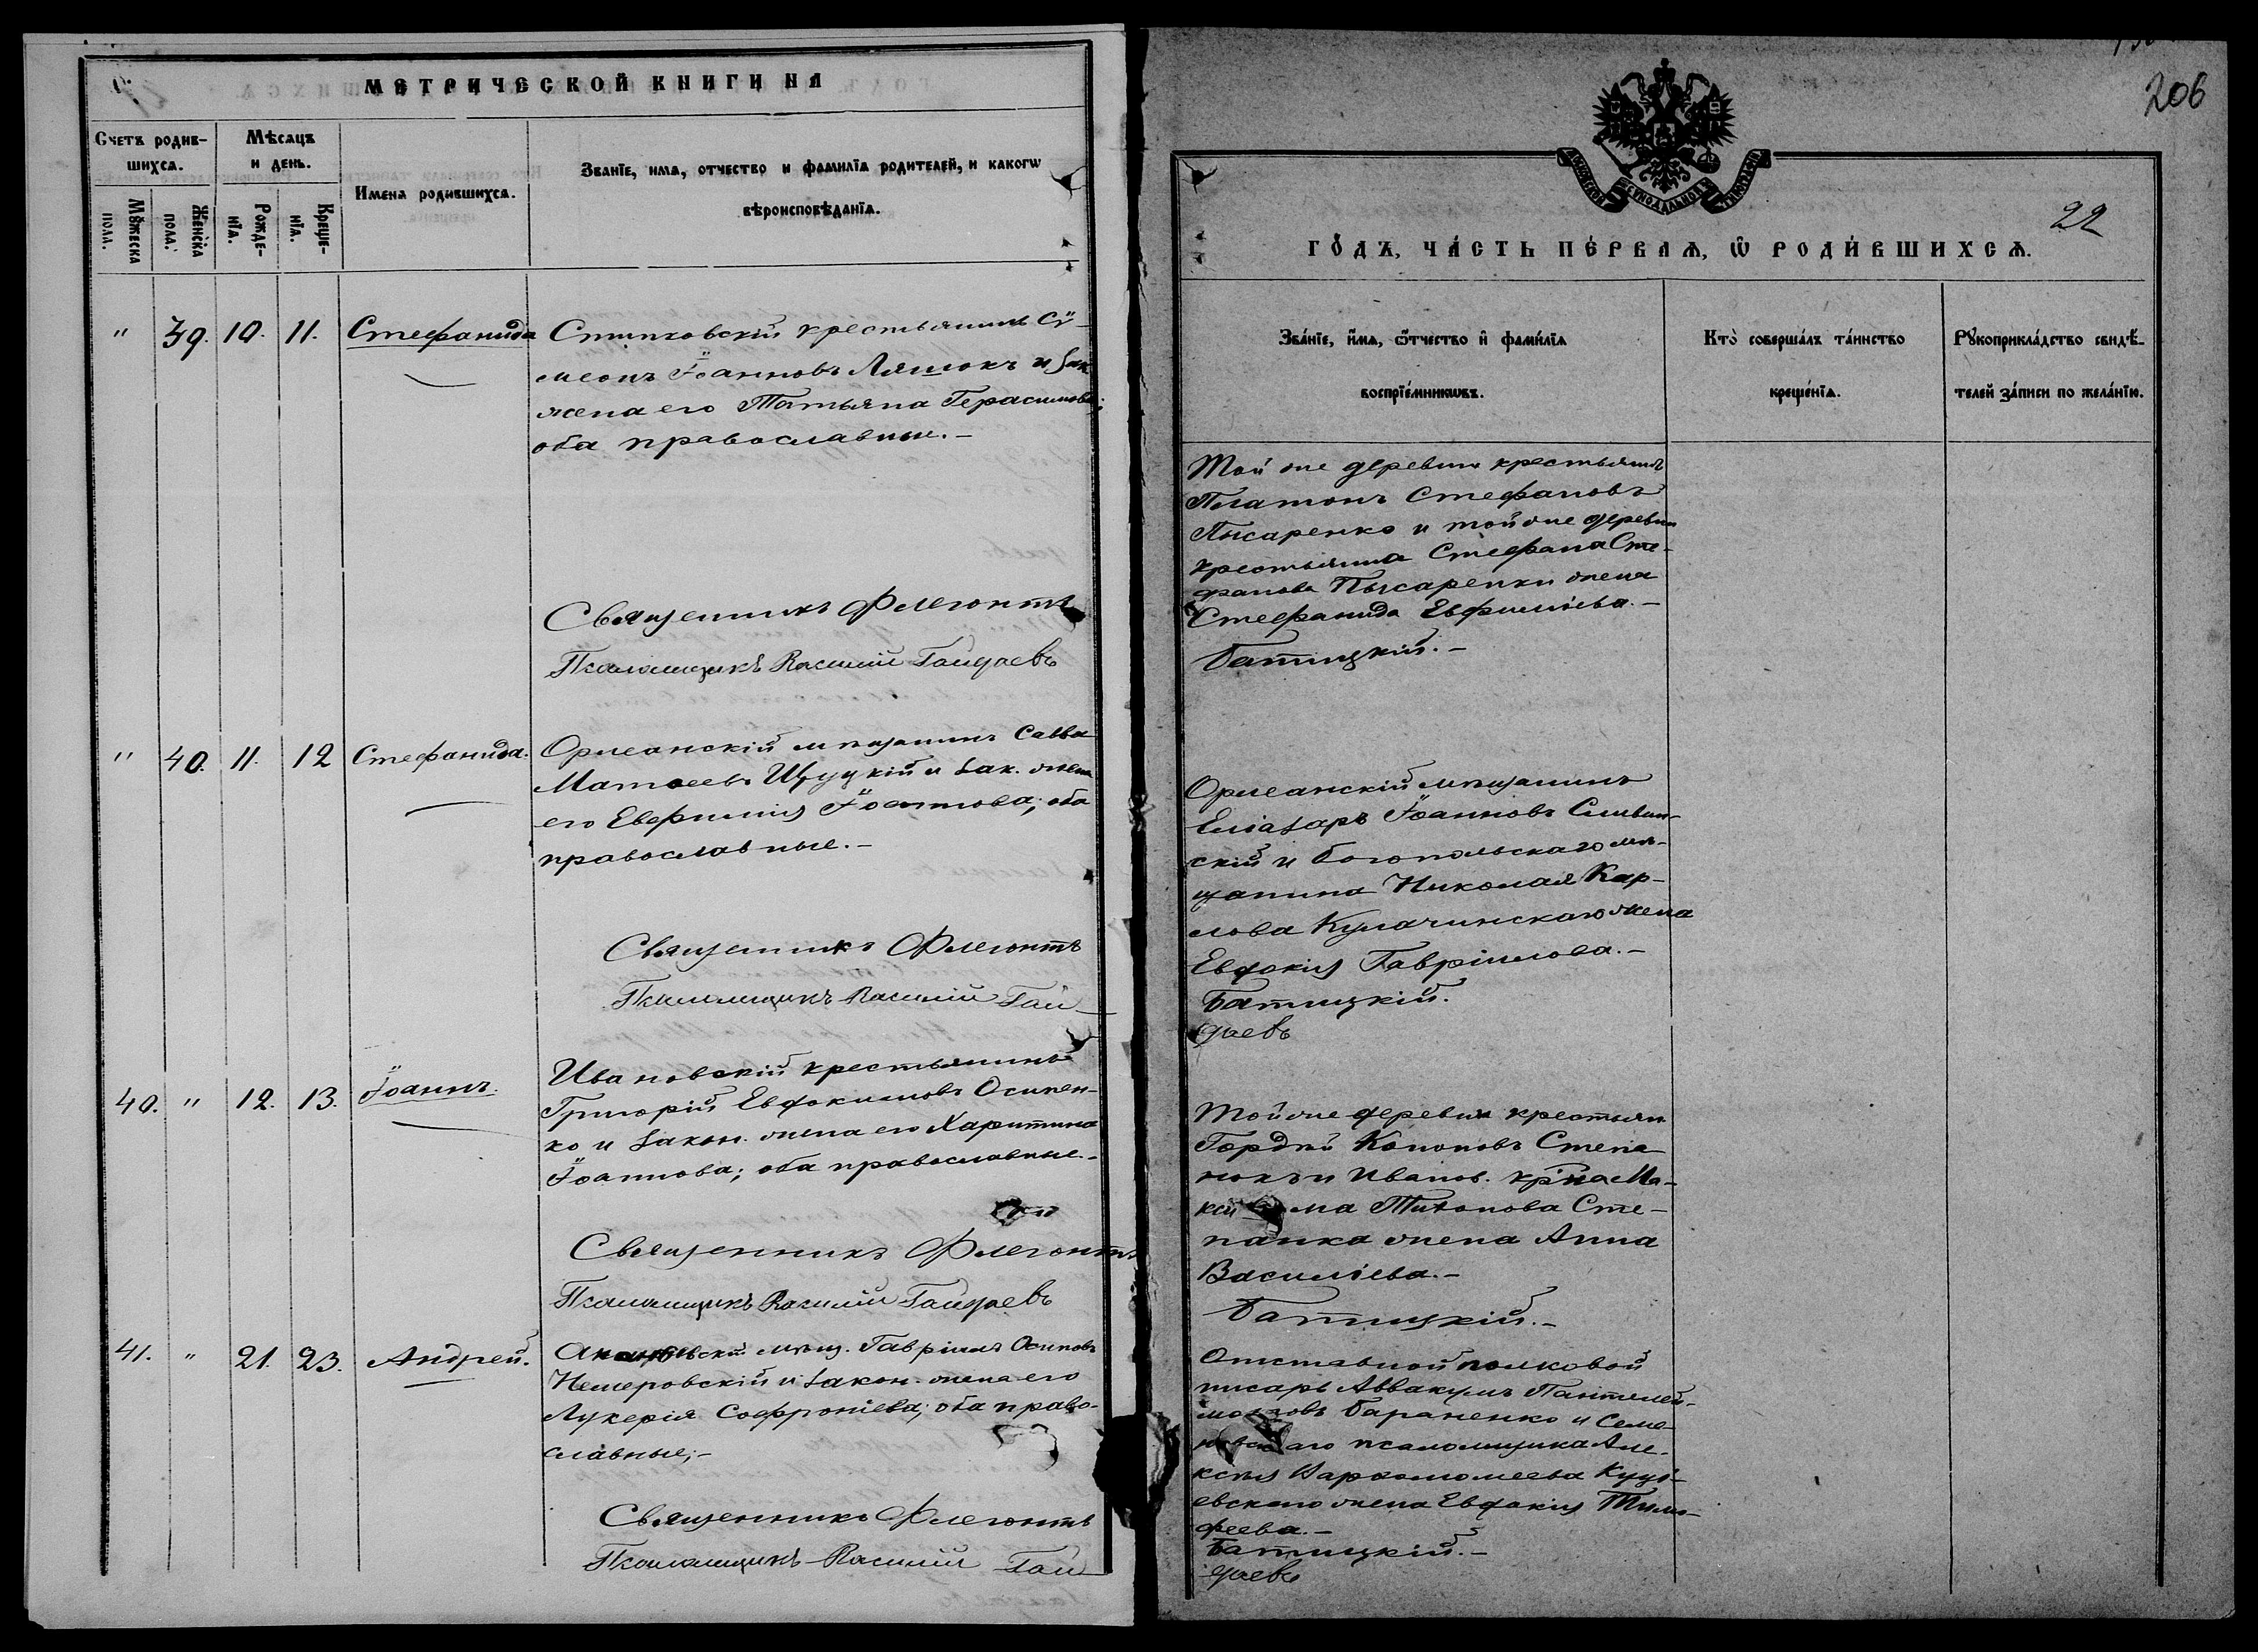 МЕТРИЧЕСКОЙ КНИГИ НА
Счетъ родив-
шихся.
Мѣсяцъ
и день.
Имена родившихся.
Званїе, имя, отчество и фамилїя родителей, и какогѡ
вѣроисповѣданїя.
Мꙋжеска
пола.
Женска
пола.
Рожде-
нїя.
Креще-
нїя.
" 39. 10. 11. Стефанида
крестьянинъ Сѵ-
меонъ Іоанновъ Ляшокъ и зак.
жена его Татьяна Герасимова;
оба православные.-
Священникъ Флегонтъ
Псаломщикъ Василій Гайдаевъ
" 40. 11. 12 Стефанида.
Орлеанскій мѣщанинъ Савва
Матѳеевъ и зак. жена
его Евфимія Іоаннова; оба
православные.-
Священникъ Флегонтъ
Псаломщикъ Василій Гай-
40. " 12. 13. Іоаннъ.
Ивановскій крестьянинъ
Григорій Евфокимовъ Осипен-
ко и закон. жена его Харитина
Іоаннова; оба православные.-
Священникъ Флегонтъ
Псаломщикъ Василій Гайдаевъ
41. " 21. 23. Андрей.
мѣщ. Гавріилъ Осиповъ
Немеровскій и закон. жена его
Лукерія Софроніева; оба право-
славные;-
Священникъ Флегонтъ
Псаломщикъ Василій Гай-
206
МОСКОВСКОЙ СѴНОДАЛЬНОЙ ТИПОГРАФІИ
22
ГО́ДЪ, ЧА́СТЬ ПЕ́РВАѦ, Ѡ҆ РОДИ́ВШИХСѦ.
Зва́нїе, и҆́мѧ, ѻ҆́тчество и҆ фамѝлїѧ
воспрїе́мникѡвъ.
Кто̀ соверша́лъ та́инство
креще́нїѧ.
Рꙋкоприкла́дство свидѣ́-
телей за́писи по жела́нїю.
Той же деревни крестьянинъ
Платонъ Стефановъ
Пысаренко и той же деревни
крестьянина Стефана Сте-
фанова Пысаренки жена
Стефанида Евфиміева.-
Батицкій.-
Орлеанскій мѣщанинъ
Еліазаръ Іоанновъ Сливин-
скій и богопольскаго мѣ-
щанина Николая Кар-
лова Кулачинскаго жена
Евдокія Гавріилова.-
Батицкій.
даевъ
Той же деревни крестьян.
Гордѣй Кононовъ Степа
нокъ и Иванов. кр-на Ма-
ксима Тихонова Сте-
панка жена Анна
Василіева.-
Батицкій.-
Отставной полковой
писарь Аввакумъ Пантелей-
моновъ Бараненко и Семе-
новскаго псаломщика Але-
ксѣя Варѳоломеева
евскаго жена Евдокія Тимо-
феева.-
Батицкій.-
даевъ